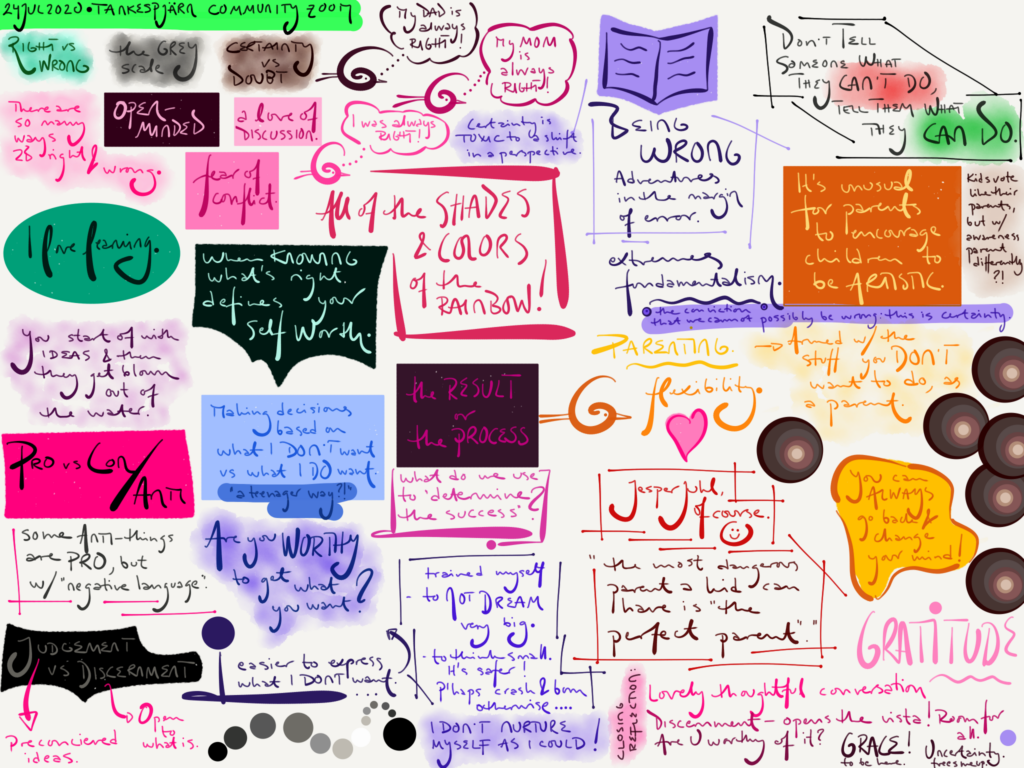 24 JUL 2020 • TANKESPJÄRN COMMUNITY ZOOM
RIGHT vs
WRONG
the GREY
scale
CERTAINTY
vs
DOUBT
My DAD is
always
RIGHT!
My MOM
is
always
RIGHT!
I was always
RIGHT!
There are
so many
ways
2B right &
wrong.
OPEN-
MINDED
a love of
DISCUSSION.
fear of
conflict.
Certainty is
TOXIC to a shift
in a perspective.
BEING
WRONG
Adventures
in the margin
of error.
DON'T TELL
SOMEONE WHAT
THEY CAN'T DO,
TELL THEM WHAT
THEY CAN DO.
I love learning.
All of the SHADES
& COLORS
of the
RAINBOW!
When KNOWING
what's right
defines your
Self Worth.
extremes
fundamentalism.
• the conviction
that we cannot possibly be wrong: this is certainty.
It's unusual
for parents
to encourage
children to
be ARTISTIC.
Kids vote
like their
parents,
but w/
awareness
parent
differently
?!
You start of with
IDEAS & then
they get blown
out of
the water!
Making decisions
based on
what I DON'T want
vs what I DO want.
"a teenager way?!"
the RESULT
or
the PROCESS
PARENTING.
flexibility.
→ Armed w/ the
stuff you DON'T
want to do, as
a parent.
PRO vs CON/
ANTI
some ANTI-things
are PRO, but
w/ "negative language".
Are you WORTHY
to get what
you want?
what do we use
to 'determine'
the success?
Jesper Juhl,
of course.
"the most dangerous
parent a kid can
have is "the
perfect parent"."
you can
ALWAYS
go back &
change
your mind!
JUDGEMENT
vs DISCERNMENT
preconcieved
ideas.
Open
to
what is.
easier to express
what I DON'T want.
- trained myself
- to NOT DREAM
very big.
- to think small.
It's safer!
P'haps crash & burn
otherwise....
I DON'T NURTURE
MYSELF AS I COULD!
GRATITUDE
CLOSING
REFLECTION:
Lovely thoughtful conversation
Discernment – opens the vista! Room for
all.
Are U worthy of it?
GRACE!
to be here.
Uncertainty
frees me up.